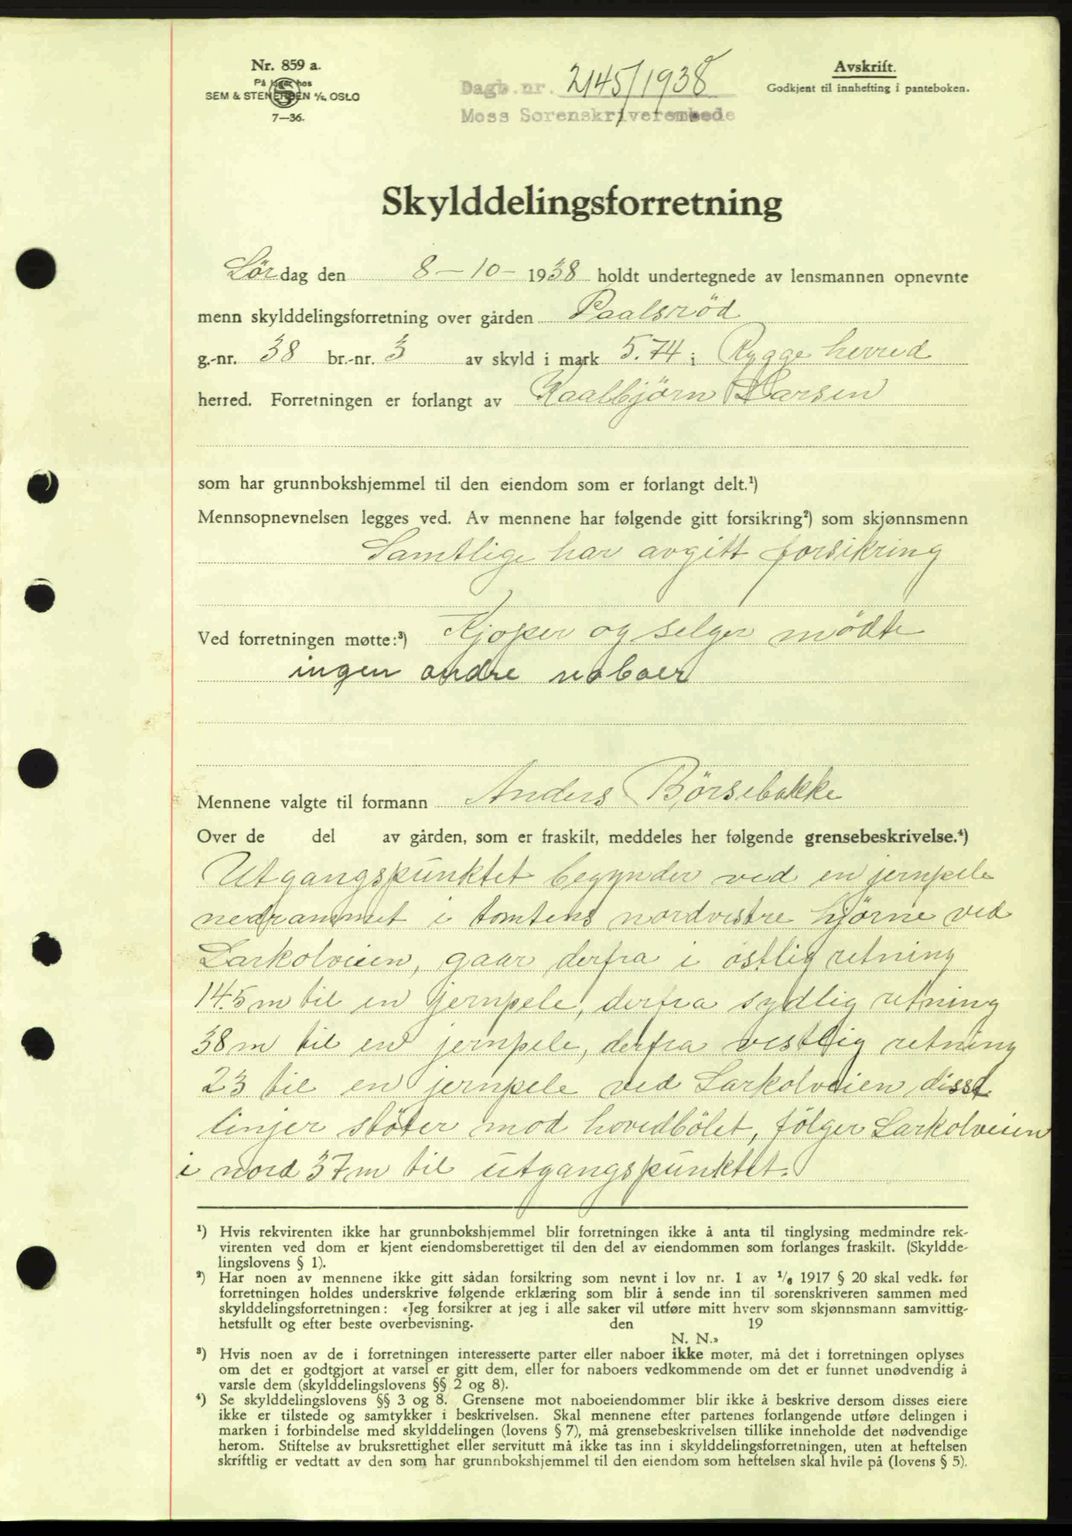 Nr. 859 a.
På lager hos
SEM & STENERSEN A/S, OSLO
7—36.
Dagb.nr. 2145/1938
Moss Sorenskriverembede
Avskrift.
Godkjent til innhefting i panteboken.
Skylddelingsforretning
Lørdag den 8-10- 1938 holdt undertegnede av lensmannen opnevnte
menn skylddelingsforretning over gården Paalsrød
g.-nr. 38 br.-nr. 3 av skyld i mark 5.74 i Rygge herred
herred. Forretningen er forlangt av Kaalbjørn Larsen
som har grunnbokshjemmel til den eiendom som er forlangt delt.¹)
Mennsopnevnelsen legges ved. Av mennene har følgende gitt forsikring²) som skjønnsmenn
Samtlige har avgitt forsikring
Ved forretningen møtte:³) Kjøper og selger mødte
ingen andre naboer
Mennene valgte til formann Anders Børsebakke
Over de del av gården, som er fraskilt, meddeles her følgende grensebeskrivelse.⁴)
Utgangspunktet begynder ved en jernpele
nedrammet i tomtens nordvestre hjørne ved
Larkolveien, gaar derfra i østlig retning
14.5 m til en jernpele, derfra sydlig retning
38 m til en jernpele, derfra vestlig retning
23 til en jernpele ved Larkolveien disse
linjer støter mod hovedbølet, følger Larkolveien
i nord 37 m til utgangspunktet.
¹) Hvis rekvirenten ikke har grunnbokshjemmel blir forretningen ikke å anta til tinglysing medmindre rek-
virenten ved dom er kjent eiendomsberettiget til den del av eiendommen som forlanges fraskilt. (Skyldde-
lingslovens § 1).
²) Har noen av mennene ikke gitt sådan forsikring som nevnt i lov nr. 1 av 1/6 1917 § 20 skal vedk. før
forretningen holdes underskrive følgende erklæring som blir å sende inn til sorenskriveren sammen med
skylddelingsforretningen: «Jeg forsikrer at jeg i alle saker vil utføre mitt hverv som skjønnsmann samvittig-
hetsfullt og efter beste overbevisning. den 19
N. N.»
³) Hvis noen av de i forretningen interesserte parter eller naboer ikke møter, må det i forretningen oplyses
om det er godtgjort at varsel er gitt dem, eller for naboers vedkommende om det er funnet unødvendig å
varsle dem (skylddelingslovens §§ 2 og 8).
⁴) Se skylddelingslovens §§ 3 og 8. Grensene mot naboeiendommer blir ikke å beskrive dersom disses eiere
ikke er tilstede og samtykker i beskrivelsen. Skal mennene efter partenes forlangende utføre delingen i
marken i forbindelse med skylddelingen (lovens § 7), må grensebeskrivelsen tillike inneholde det nødvendige
herom. Stiftelse av bruksrettighet eller servitutt må ikke tas inn i skylddelingsforretningen, uten at heftelsen
skriftlig er vedtatt av den som har grunnbokshjemmel til den eiendom som heftelsen skal hvile på (lovens § 5).